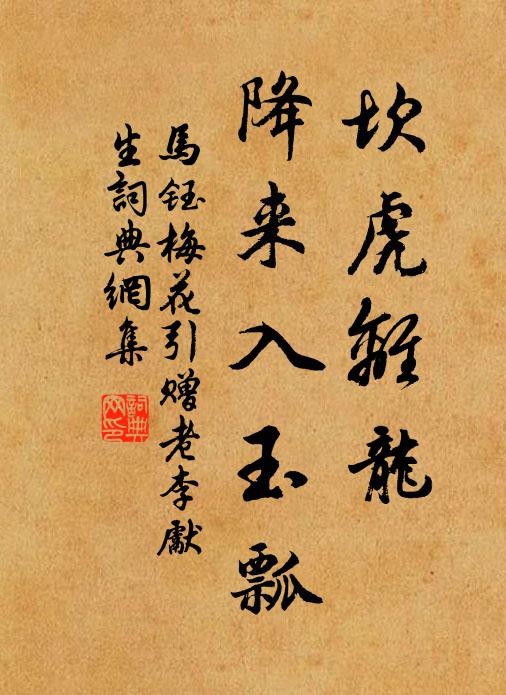 坎虎離龍
降来入玉瓢
馬鈺梅花引贈老李獻
生詞典網集
詞典
网印